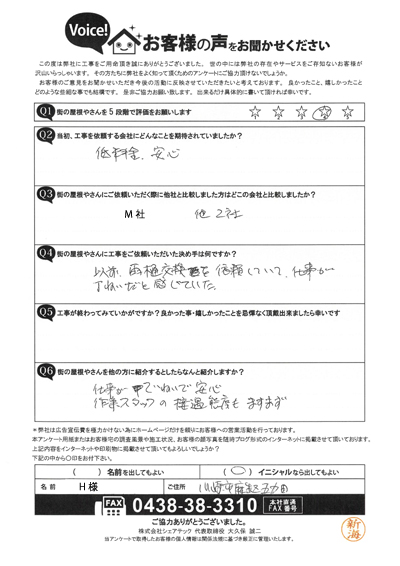 Voice!
お客様の声をお聞かせください
この度は弊社に工事をご用命頂き誠にありがとうございました。世の中には弊社の存在やサービスをご存知ないお客様が
沢山いらっしゃいます。その方たちに弊社をよく知って頂くためのアンケートにご協力頂けないでしょうか。
お客様のご意見をお聞かせいただき今後の活動に反映させていただきたいと考えております。良かったこと、嬉しかったこと
どのような些細な事でも結構です。是非ご協力お願い致します。出来るだけ具体的に書いて頂ければ幸いです。
Q1 街の屋根やさんを5段階で評価をお願いします ☆ ☆ ☆ ☆ ☆
Q2 当初、工事を依頼する会社にどんなことを期待されていましたか?
低料金、安心
Q3 街の屋根やさんにご依頼いただく際に他社と比較しました方はどこの会社と比較しましたか?
M社 他2社
Q4 街の屋根やさんに工事をご依頼いただいた決め手は何ですか?
以前、雨樋交換を依頼していて、仕事が
丁ねいだと感じていた。
Q5 工事が終わってみていかがですか?良かった事・嬉しかったことを忌憚なく頂戴出来ましたら幸いです
Q6 街の屋根やさんを他の方に紹介するとしたらなんと紹介しますか?
仕事がていねいで安心
作業スタッフの接遇態度もまずまず
＊弊社は広告宣伝費を極力かけない為にホームページだけを頼りにお客様への営業活動を行っております。
本アンケート用紙またはお客様宅の調査風景や施工状況、お客様の顔写真を随時ブログ形式のインターネットに掲載させて頂いております。
上記内容をインターネットや印刷物に掲載させて頂いてもよろしいでしょうか?
下記の中から〇印をお付下さい。
( ) 名前を出してもよい (〇) イニシャルなら出してもよい
名前 H様 ご住所 川崎市麻生区
FAX 0438-38-3310 本社直通 FAX番号
ご協力ありがとうございました。
株式会社シェアテック 代表取締役 大久保 誠二
当アンケートで取得したお客様の個人情報は関係法規に基づき厳正に管理いたします。
新海